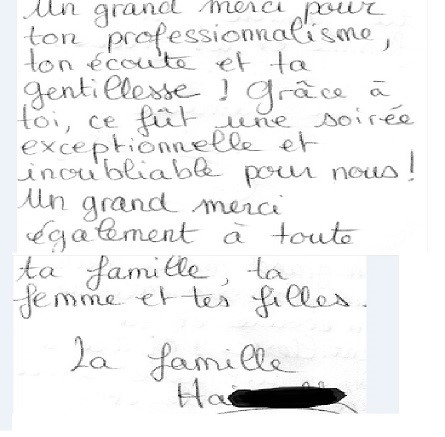 Un grand merci pour
ton professionnalisme,
ton écoute et ta
gentillesse ! Grâce à
toi, ce fût une soirée
exceptionnelle et
inoubliable pour nous !
Un grand merci
également à toute
ta famille, ta
femme et tes filles.
La famille